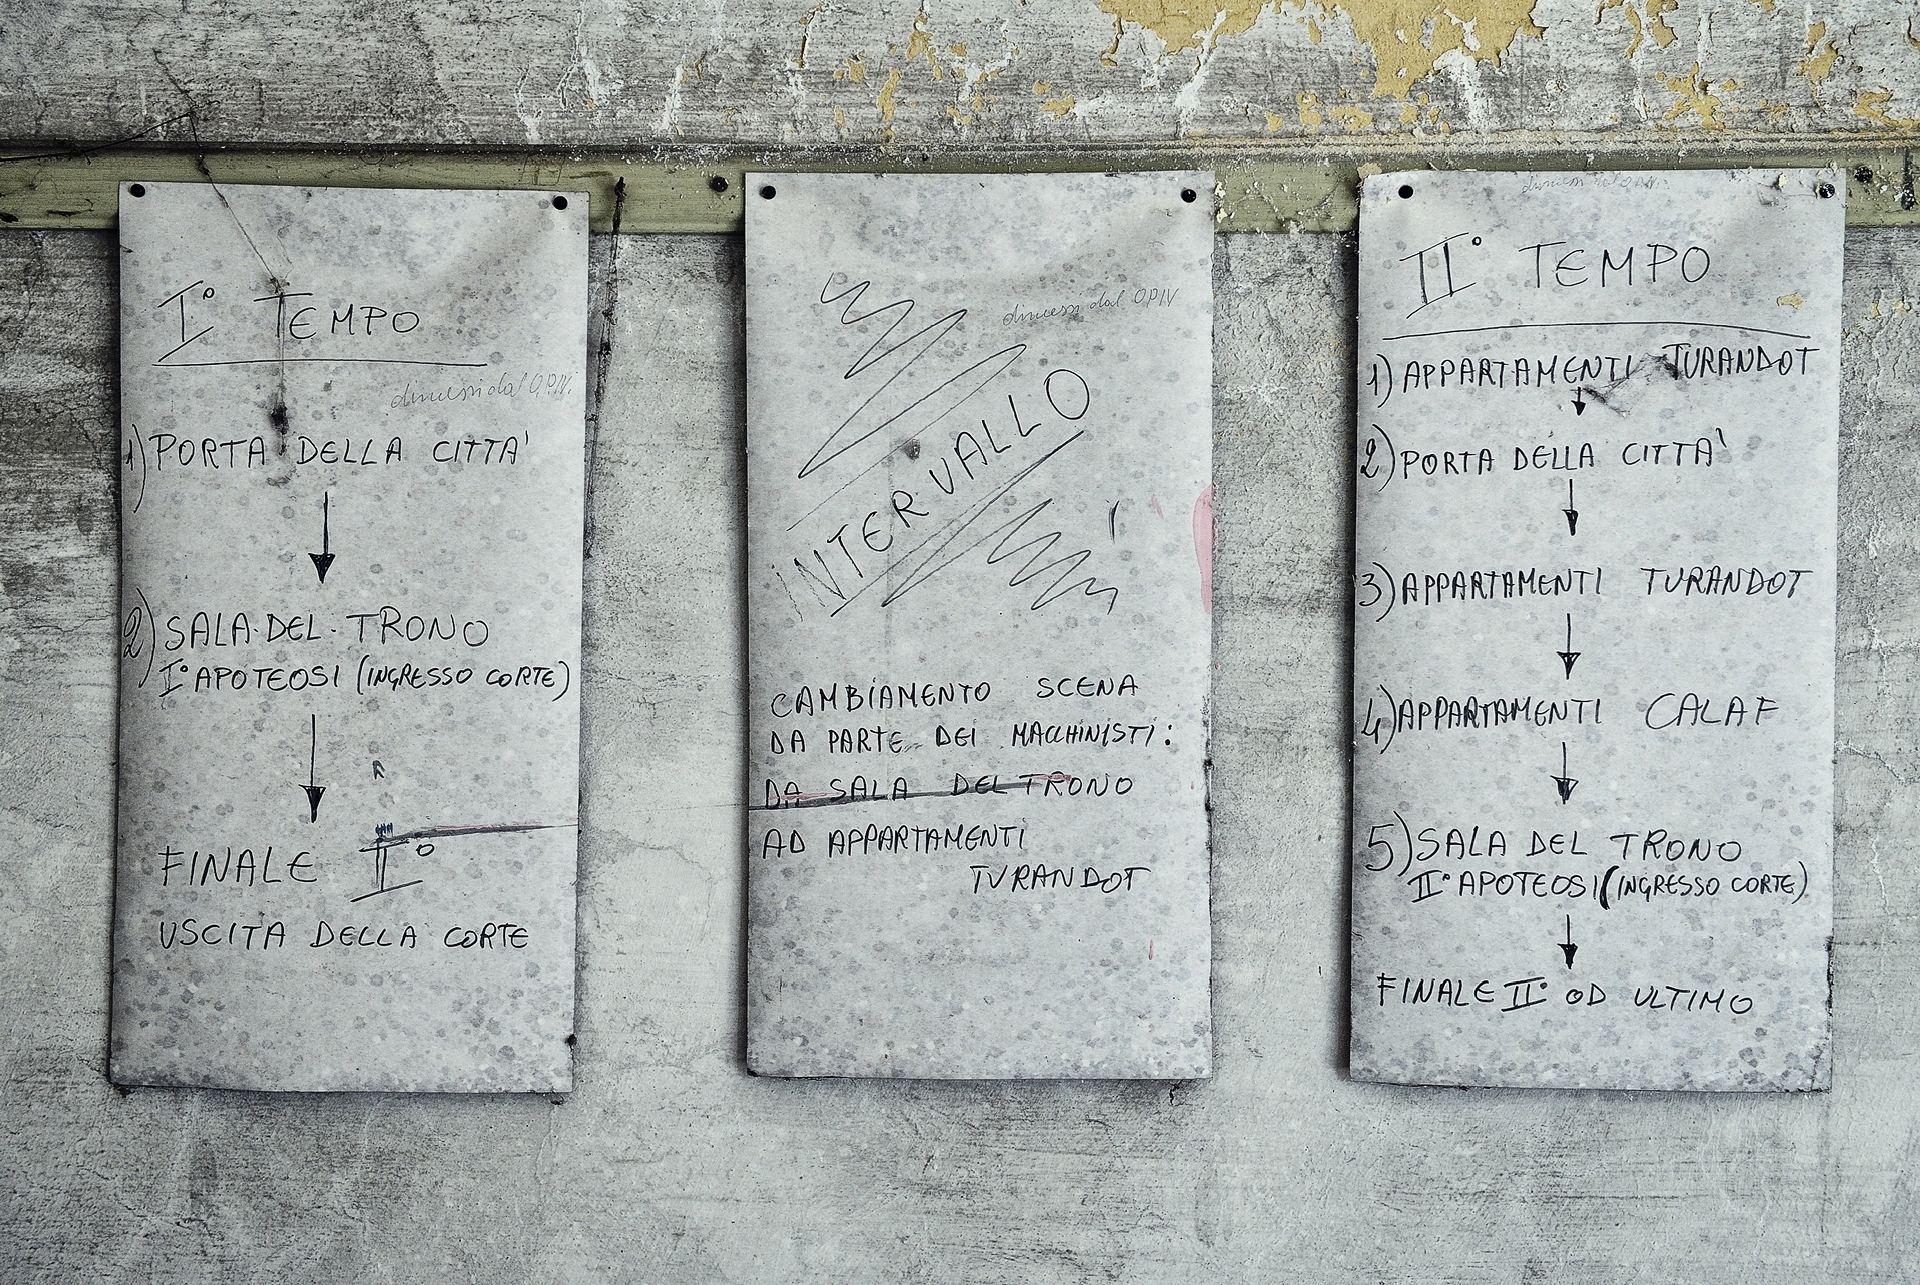 I° TEMPO
dimessi dal O.P.N.
1) PORTA DELLA CITTA'
2) SALA·DEL·TRONO
I° APOTEOSI (INGRESSO CORTE)
FINALE I°
USCITA DELLA CORTE
dimessi dal OPN
INTERVALLO
CAMBIAMENTO SCENA
DA PARTE DEI MACCHINISTI:
DA SALA DEL TRONO
AD APPARTAMENTI
TURANDOT
dimessi dal
II° TEMPO
1) APPARTAMENTI TURANDOT
2) PORTA DELLA CITTA'
3) APPARTAMENTI TURANDOT
4) APPARTAMENTI CALAF
5) SALA DEL TRONO
II° APOTEOSI (INGRESSO CORTE)
FINALE II° OD ULTIMO